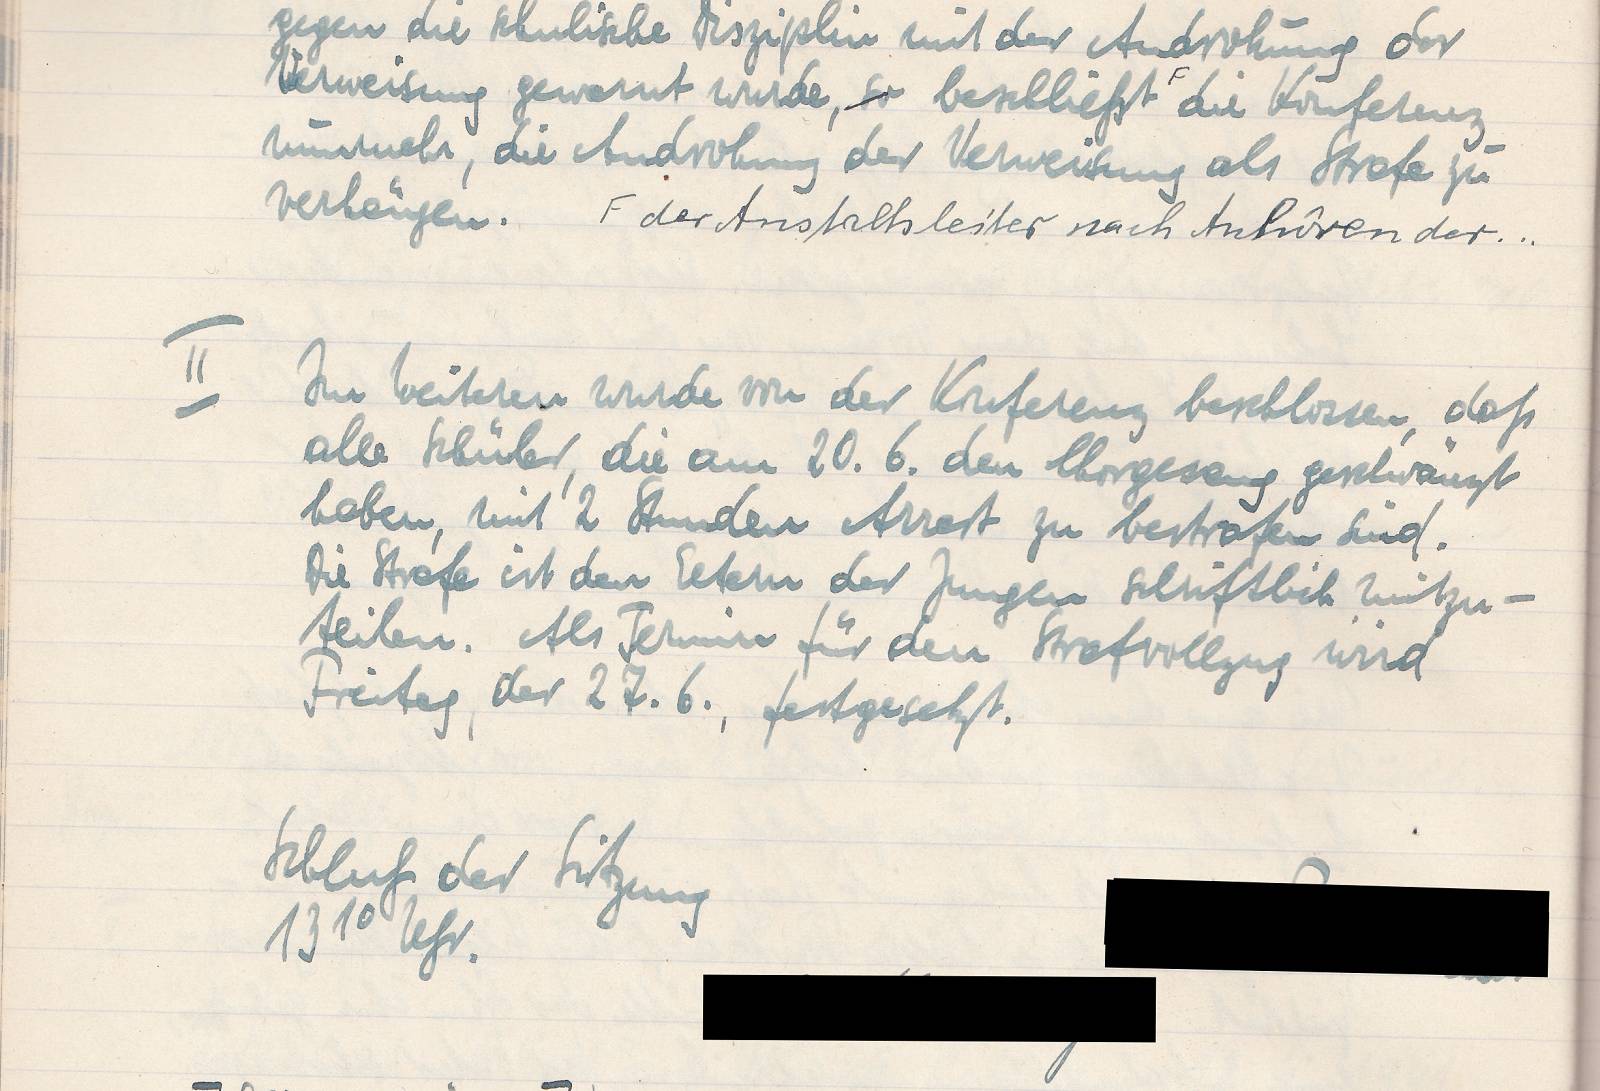 gegen die schulische Disziplin mit der Androhung der
Verweisung gewarnt wurde, so beschließt ꜰ die Konferenz
nunmehr, die Androhung der Verweisung als Strafe zu
verhängen. ꜰ der Anstaltsleiter nach Anhören der...
II Im Weiteren wurde von der Konferenz beschlossen, daß
alle Schüler, die am 20. 6. den Chorgesang geschwänzt
haben, mit 2 Stunden Arrest zu bestrafen sind.
Die Strafe ist den Eltern der Jungen schriftlich mitzu-
teilen. Als Termin für den Strafvollzug wird
Freitag, der 27. 6., festgesetzt.
Schluß der Sitzung
13¹⁰ Uhr.